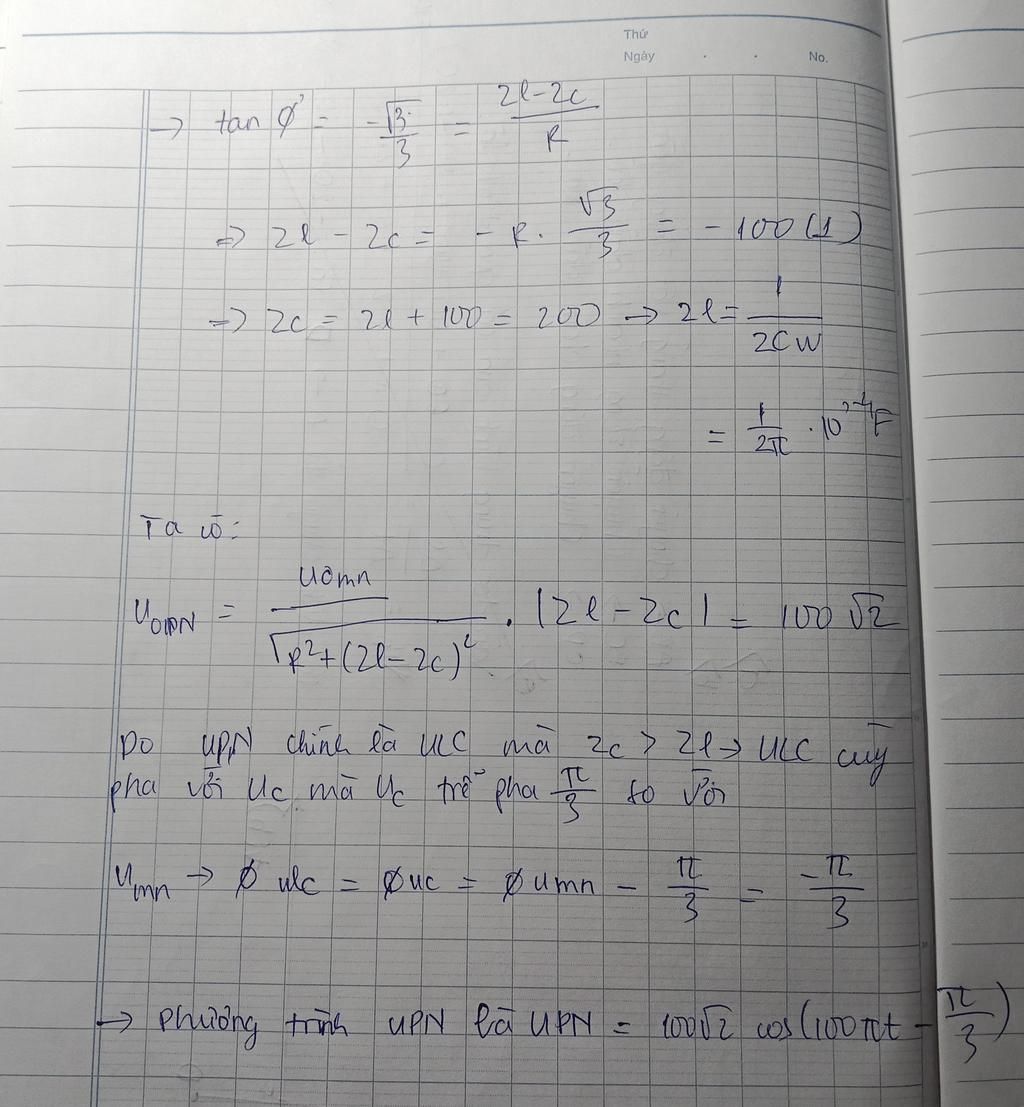 Thứ
Ngày . . No.
→ tan φ' = -√3/3 = (2l-2c)/R
=> 2l - 2c = - R. √3/3 = - 100 (1)
=> 2c = 2l + 100 = 200 → 2l = 1/(2CW)
= 1/2π . 10^-4 F
Ta có:
U0PN = U0mn/√(R²+(2l-2c)²) . |2l - 2c| = 100√2
Do uPN chính là uLC mà 2c > 2l → uLC cùng
pha với Uc mà Uc trễ pha π/3 so với
Umn → φ ulc = φ uc = φ umn - π/3 = -π/3
→ phương trình UPN là UPN = 100√2 cos(100πt - π/3)